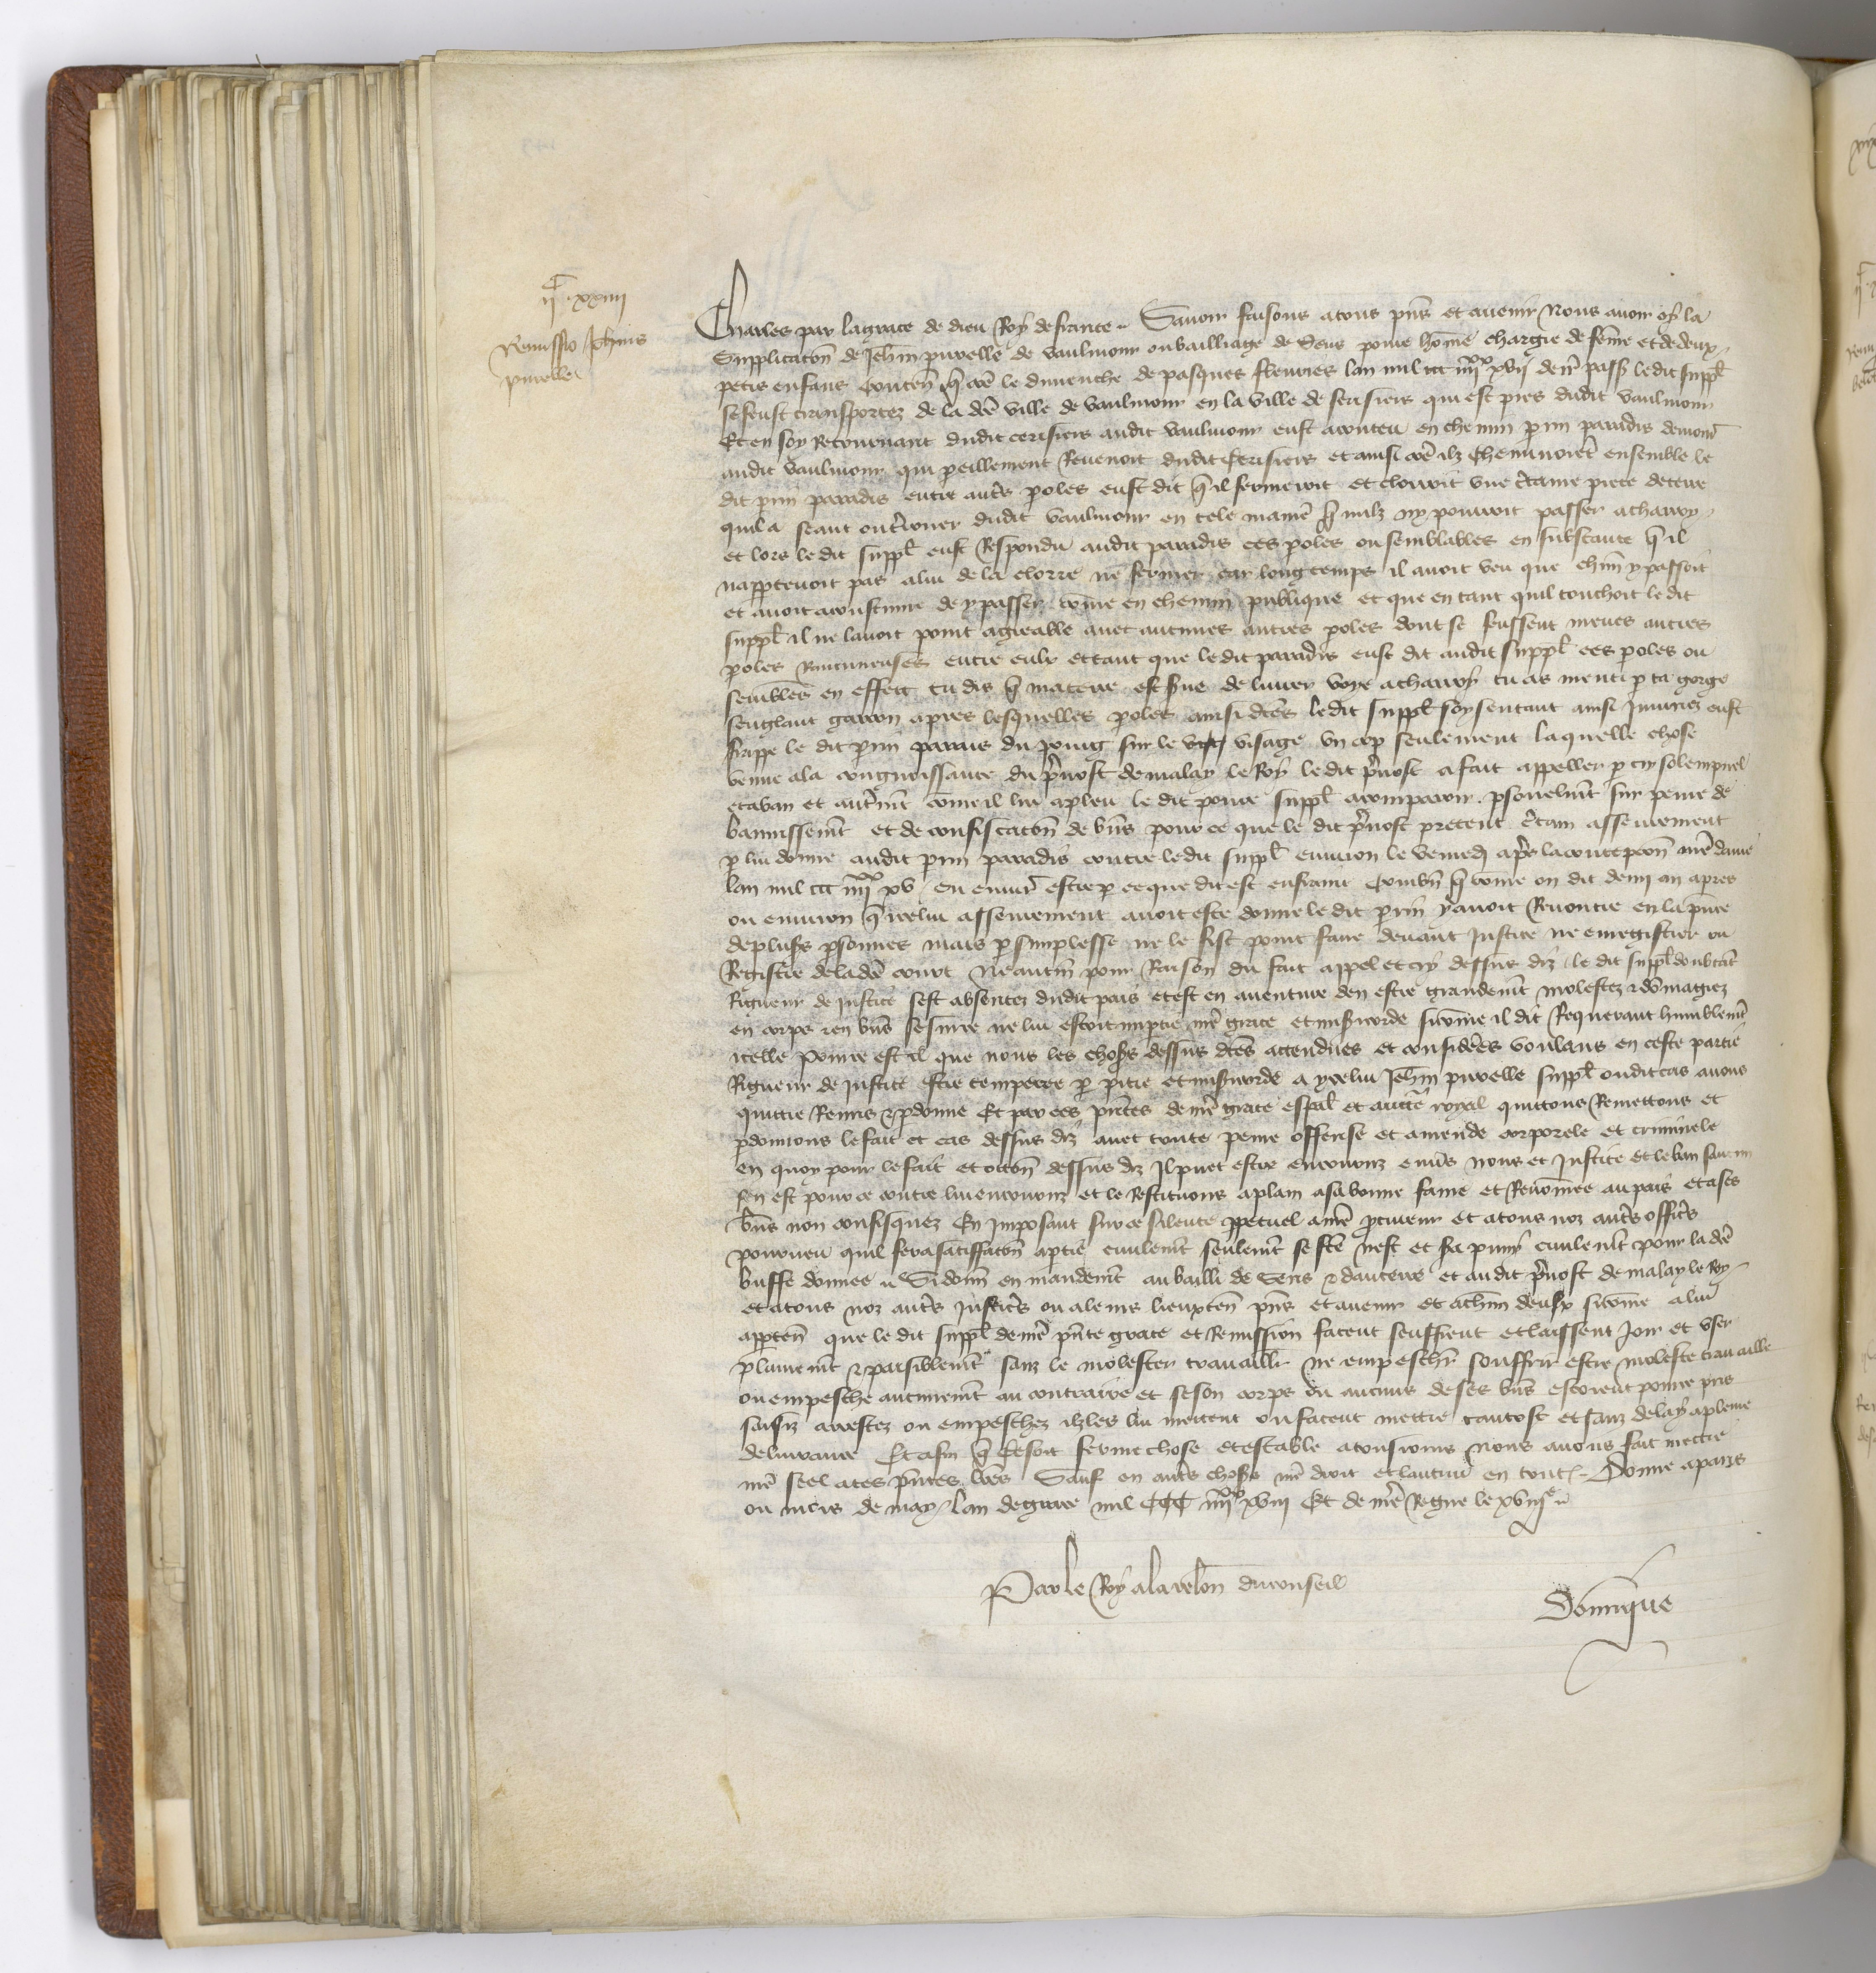 ii c xxiiii
Remissio Johannis
purelle
Charles par la grace de dieu Roy de france. Savoir faisons a tous pns et avenir Nous avoir oy la
Supplicacon de Jehan purelle de vaulmour ou bailliage de Sens povre home chargie de feme et de deux
petis enfans Conten que come le dimenche de pasques flenries lan mil ccc iiiixx xvii dern passe le dit suppl
se feust transportez de la dce ville de vaulmour en la ville de serisiers qui est pres dudit vaulmour
Et en soy Retournant dudit cerisiers audit vaulmour eust aconteu en chemin perrin paradis demour
audit vaulmour qui pareillement Revenoit dudit Cerisiers et ainsi come ilz cheminoient ensemble le
dit perrin paradis entre autres paroles eust dit quil fermeroit et clorroit une certaine piece de terre
quil a seant ou terrouer dudit vaulmour en tele maniere que nulz ny pourroit passer a charroy
et lors le dit suppl eust Respondu audit paradis ces paroles ou semblables en substance quil
nappartenoit pas a lui de la clorre ne fermer car long temps il avoit veu que chun y passoit
et avoit acoustume de y passer come en chemin publique et que en tant quil touchoit le dit
suppl il ne lavoit point agreable avec aucunes autres paroles dont se feussent meues autres
paroles Rancuneuses entre eulx et tant que le dit paradis eust dit audit suppl ces paroles ou
sembles en effect tu dis que ma terre est de livrer voye a charroy tu as menti par ta gorge
senglant garcon apres lesquelles paroles ainsi dictes le dit suppl soy sentant ainsi Injuriez eust
frappe le dit perrin paradis du poing sur le visage un cop seulement laquelle chose
venue a la congnoissance du prevost de malay le Roy le dit prevost a fait appeller par cry solempnel
et a ban et autrement come il lui a pleu le dit povre suppl a comparoir personelment sur peine de
bannissement et de confiscacon de biens pour ce que le dit prevost pretent certain asseurement
par lui donne audit perrin paradis contre le dit suppl environ le vendredi apres la concepcon nre dame
lan mil ccc iiiixx xv ou environ estre par ce que dit est enfraint Combien que come on dit demi an apres
ou environ que icelui asseurement avoit este donne le dit perrin y avoit Renoncie en la pnce
de pluseurs personnes mais par simplesse ne le fist point faire devant Justice ne enregistrer ou
Registre de la dce court Neantmoins pour Raison du fait appel et cry dessus diz le dit suppl doubtant
Rigueur de justice sest absentez dudit pais et est en aventure den estre grandement molestez et domagiez
en corps et en biens se sur ce ne lui estoit impartie nre grace et misericorde si come il dit Requerant humblement
icelle Pour ce est il que nous les choses dessus dces attendues et considerees voulans en ceste partie
Rigueur de justice estre temperee par pitie et misericorde a ycelui Jehan purelle suppl ou dit cas avons
quittie Remis et pardonne Et par ces pntes de nre grace especial et auctorite royal quittons Remettons et
pardonnons le fait et cas dessus diz avec toute peine offense et amende corporele et criminele
en quoy pour le fait et occon dessus diz Il puet estre encouruz envers nous et justice et le ban se aucun
sen est pour ce contre lui encouruz et le Restituons a plain a sa bonne fame et Renomee au pais et a ses
biens non confisquez En imposant sur ce silence perpetuel a nre procureur et a tous noz autres officiers
pourveu quil fera satisfacon a partie civilement seulement se fte nest et sera puny civilement pour la dce
buffe donnee Si donnons en mandement au bailli de Sens et daucerre et audit prevost de malay le Roy
et a tous noz autres justiciers ou a leurs lieuxtenans pns et avenir et a chun deulx si come a lui
appartendra que le dit suppl de nre pnte grace et Remission facent seuffrent et laissent joir et user
plainement et paisiblement sanz le molester travailler ne empescher souffrir estre moleste travaille
ou empesche aucunement au contraire et se son corps ou aucuns de ses biens estoient pour ce pris
saisiz arrestez ou empeschez ilz les lui mettent ou facent mettre tantost et sanz delay a pleine
delivrance Et afin que ce soit ferme chose et estable a tousiours nous avons fait mettre
nre seel a ces pntes lres Sauf en autres choses nre droit et lautrui en toutes. Donne a paris
ou mois de may lan de grace mil CCC iiiixx xviii Et de nre Regne le xviiie
Par le Roy a la relacon du conseil
Dominique